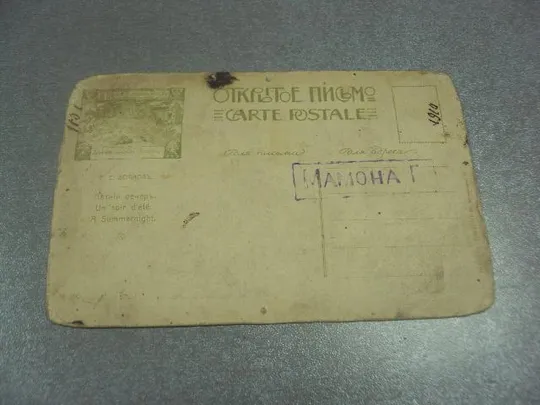 ОТКРЫТОЕ ПИСЬМО
CARTE POSTALE
Для письма
Для адреса
МАМОНА Г
1910
Un soir d'été.
A Summernight.